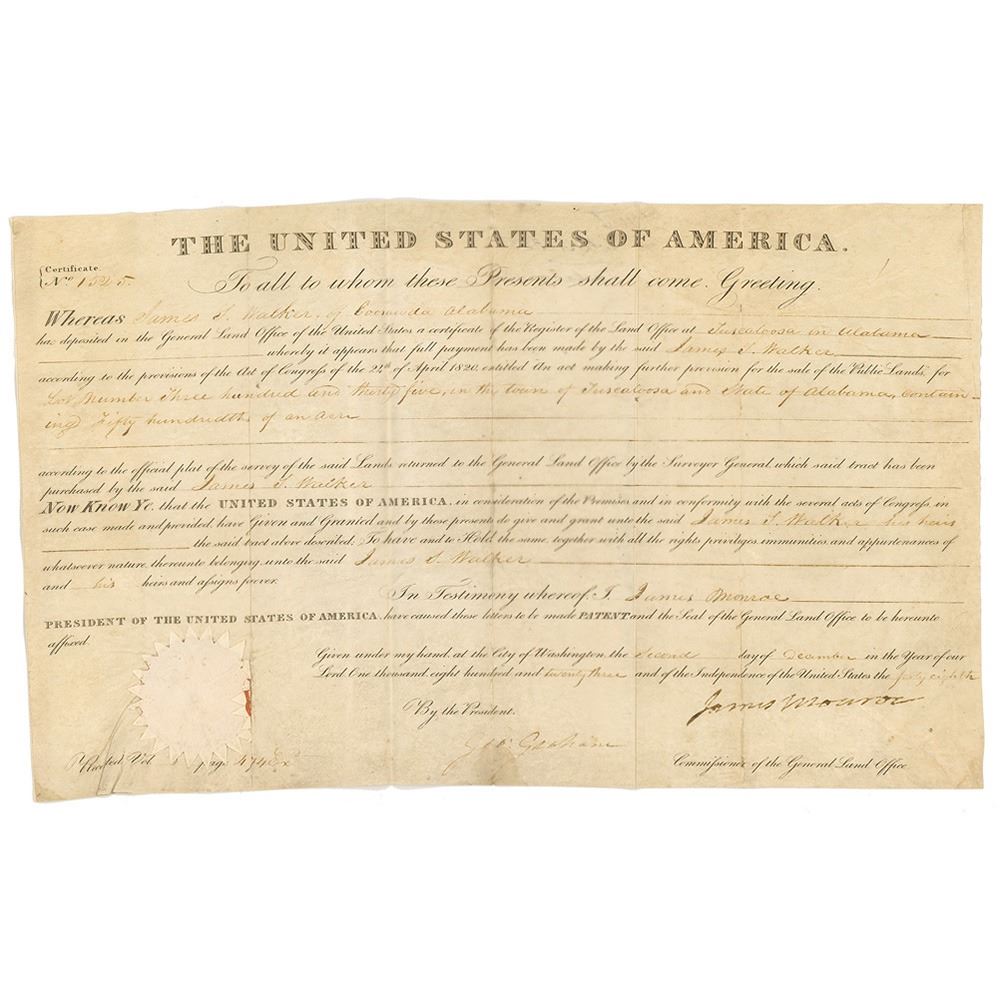 THE UNITED STATES OF AMERICA.
Certificate.
No. 1525.
To all to whom these Presents shall come, Greeting.
Whereas James S. Walker, of Alabama
has deposited in the General Land Office of the United States a certificate of the Register of the Land Office at Tuscaloosa in Alabama
whereby it appears that full payment has been made by the said James S. Walker
according to the provisions of the Act of Congress of the 24th of April 1820, entitled "An act making further provision for the sale of the Public Lands," for
Lot number three hundred and thirty five, in the town of Tuscaloosa and State of Alabama, contain-
ing Fifty hundredth of an acre
according to the official plat of the survey of the said Lands, returned to the General Land Office by the Surveyor General, which said tract has been
purchased by the said James S. Walker
Now Know Ye, that the UNITED STATES OF AMERICA, in consideration of the Premises and in conformity with the several acts of Congress, in
such case made and provided, have Given and Granted and by these presents do give and grant unto the said James S. Walker his heirs
the said tract above described: To have and to Hold the same, together with all the rights, privileges, immunities, and appurtenances of
whatsoever nature, thereunto belonging, unto the said James S. Walker
and his heirs and assigns forever.
In Testimony whereof, I, James Monroe
PRESIDENT OF THE UNITED STATES OF AMERICA, have caused these letters to be made PATENT and the Seal of the General Land Office to be hereunto
affixed.
Given under my hand, at the City of Washington, the Second day of December in the Year of our
Lord One thousand, eight hundred and twenty three and of the Independence of the United States the forty eighth
James Monroe
By the President.
Geo: Graham
Commissioner of the General Land Office
Recorded, Vol page 474